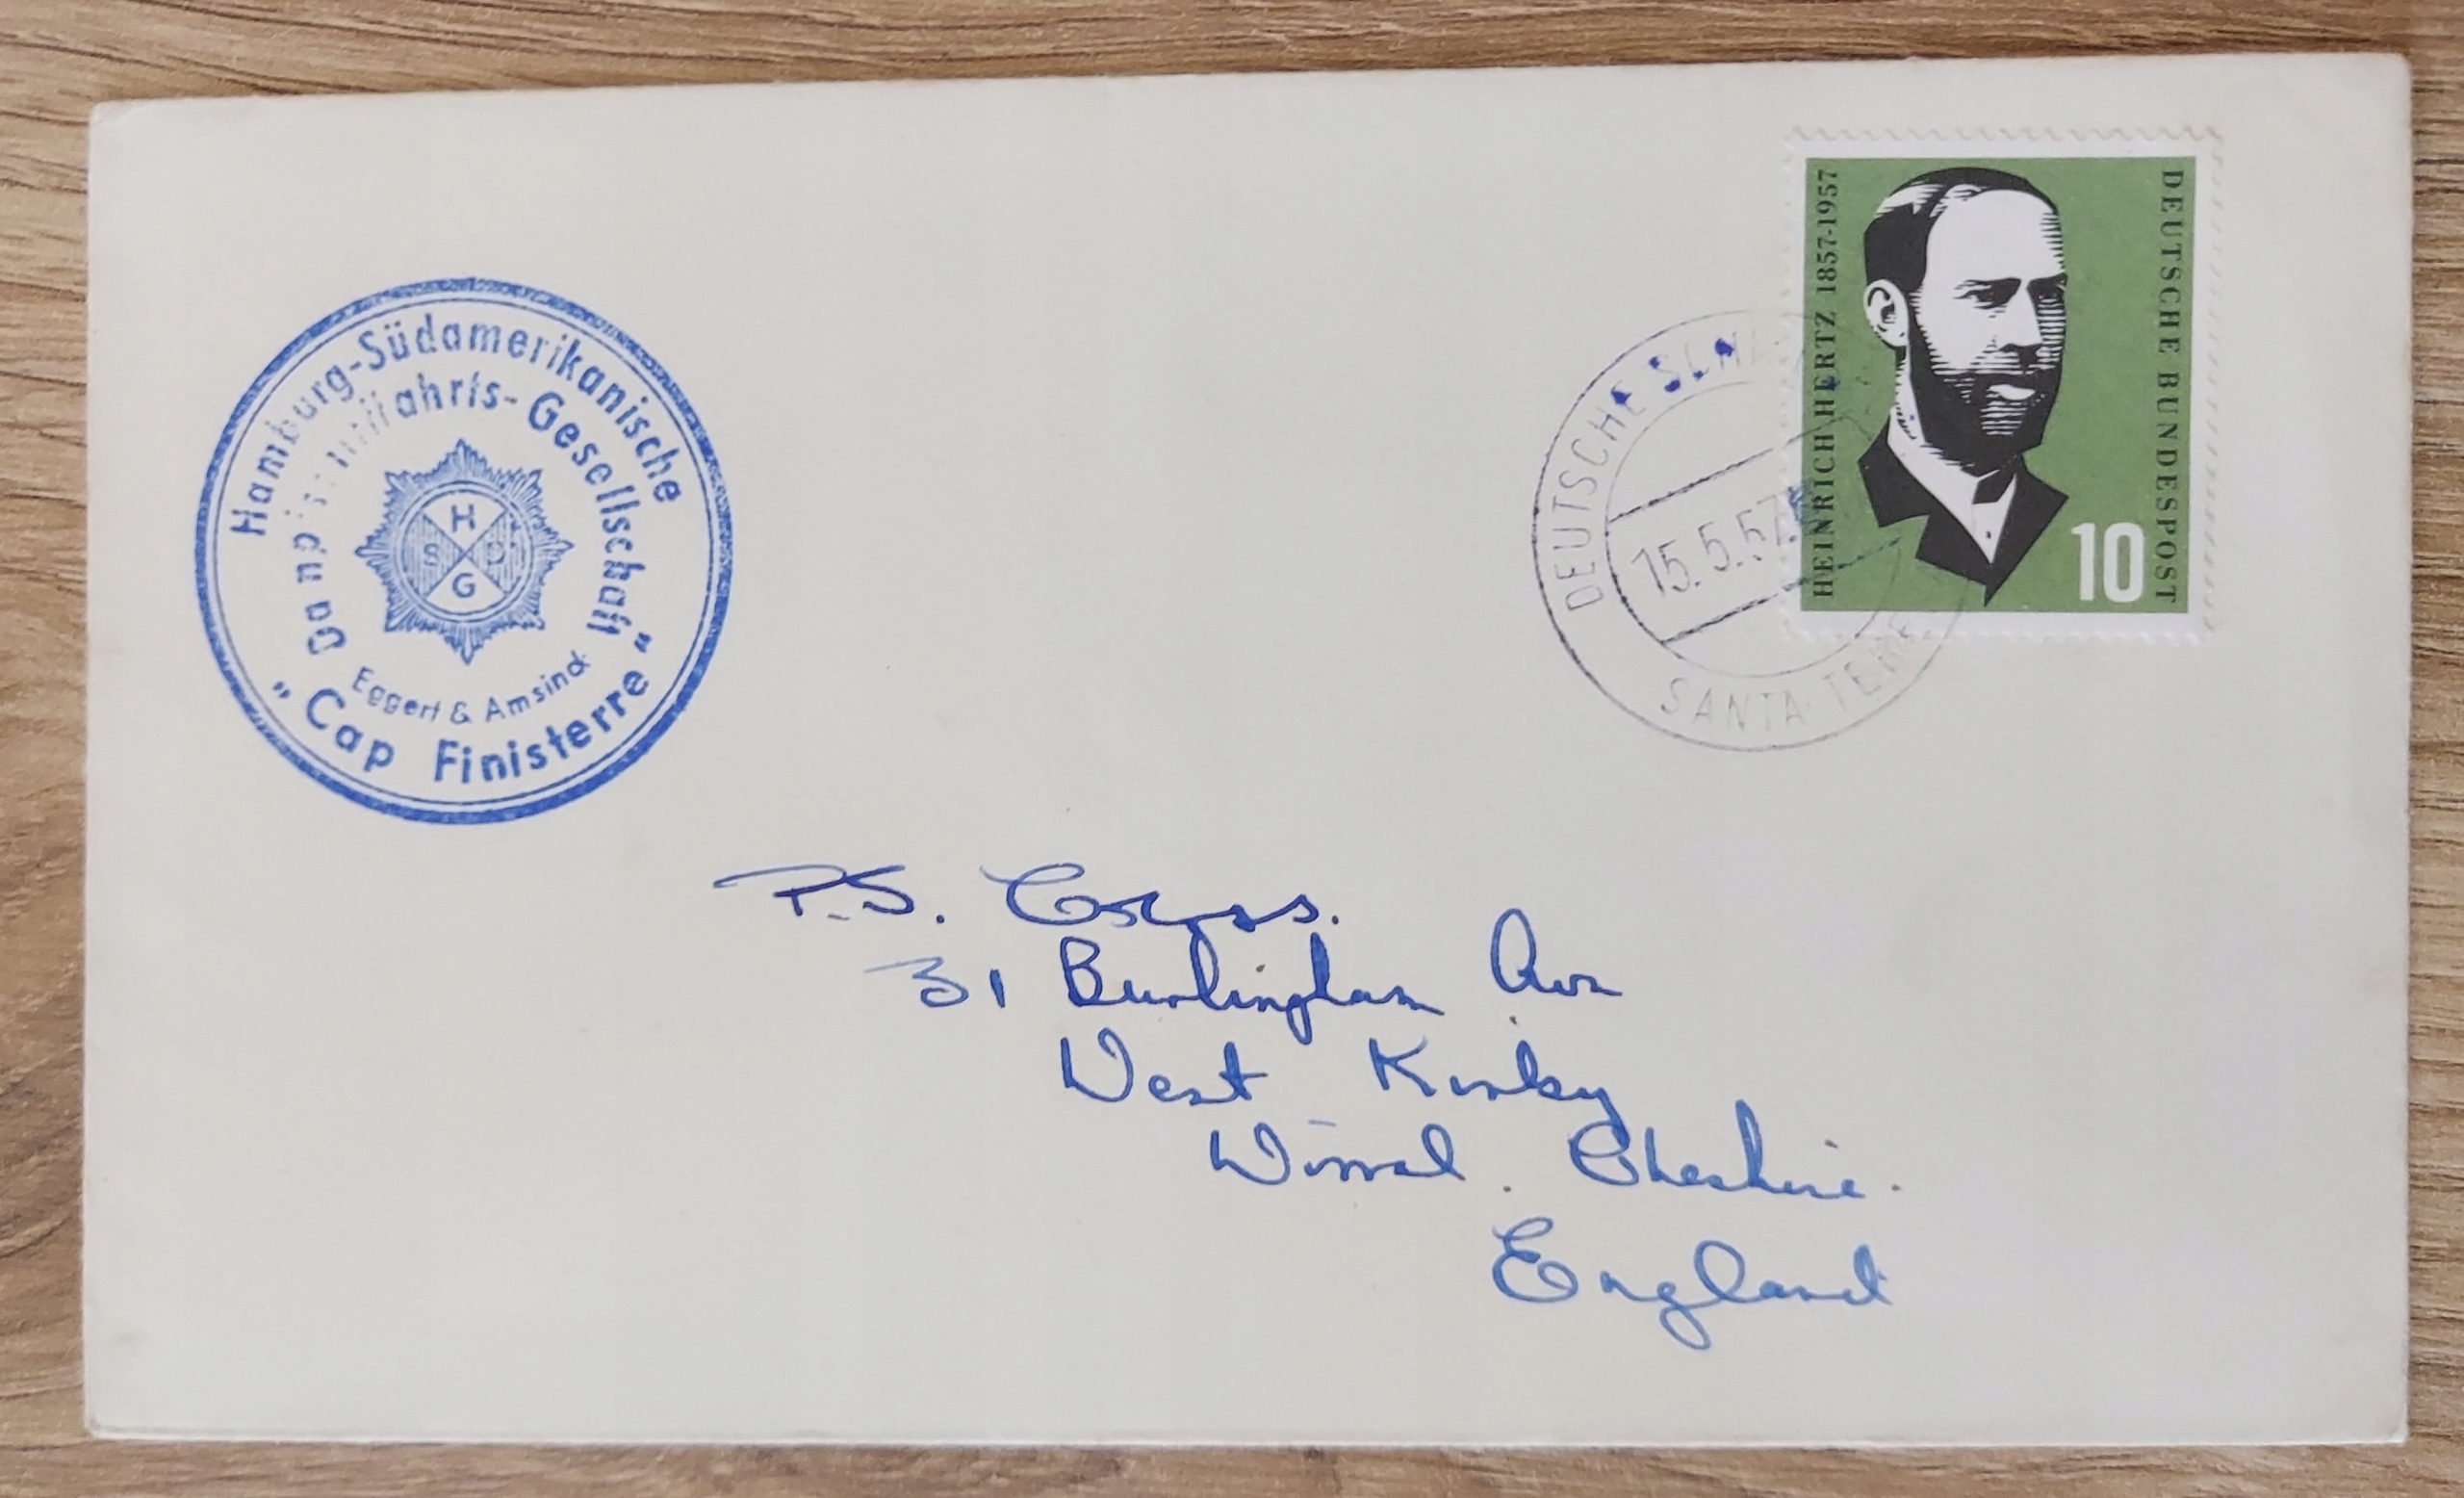 Hamburg-Südamerikanische
Dampfschifffahrts-Gesellschaft
H
S D
G
Eggert & Amsinck
„Cap Finisterre"
HEINRICH HERTZ 1857-1957
DEUTSCHE BUNDESPOST
10
DEUTSCHE
15.5.57
SANTA TERE
P.S.
31 Burlingham Ave
West Kirby
Wirral. Cheshire.
England